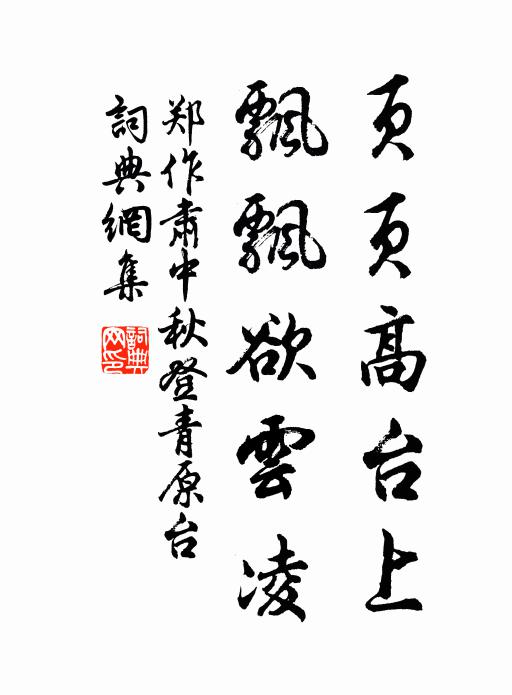 页页高台上
飄飄欲雲凌
郑作肃中秋登青原台
詞典網集
詞典网印